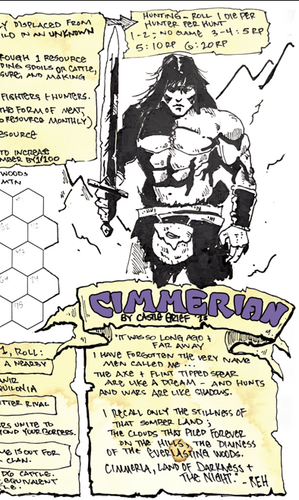 Y DISPLACED FROM
ILD IN AN UNKNOWN
ROUGH 1 RESOURCE
DING SPOILS OR CATTLE,
SURE, AND MAKING
FIGHTERS & HUNTERS.
THE FORM OF MEAT,
RESOURCE MONTHLY)
RESOURCE
TO INCREASE
MBER BY 1/100
WOODS
MTN
HUNTING - ROLL 1 DIE PER
HUNTER PER HUNT.
1-2: NO GAME 3-4: 5RP
5: 10RP 6: 20RP
CIMMERIAN
BY CASTLE GRIEF
"IT WAS SO LONG AGO &
FAR AWAY
I HAVE FORGOTTEN THE VERY NAME
MEN CALLED ME...
THE AXE & FLINT TIPPED SPEAR
ARE LIKE A DREAM - AND HUNTS
AND WARS ARE LIKE SHADOWS.
I RECALL ONLY THE STILLNESS OF
THAT SOMBER LAND;
THE CLOUDS THAT PILED FOREVER
ON THE HILLS, THE DIMNESS
OF THE EVERLASTING WOODS.
CIMMERIA, LAND OF DARKNESS &
THE NIGHT." - REH
1, ROLL:
A NEARBY
UILONIA
BITTER RIVAL
RS UNITE TO
YOND YOUR BORDERS.
ME IS OUT FOR
CLAN.
D6 CATTLE.
EQUIVALENT
TLE.